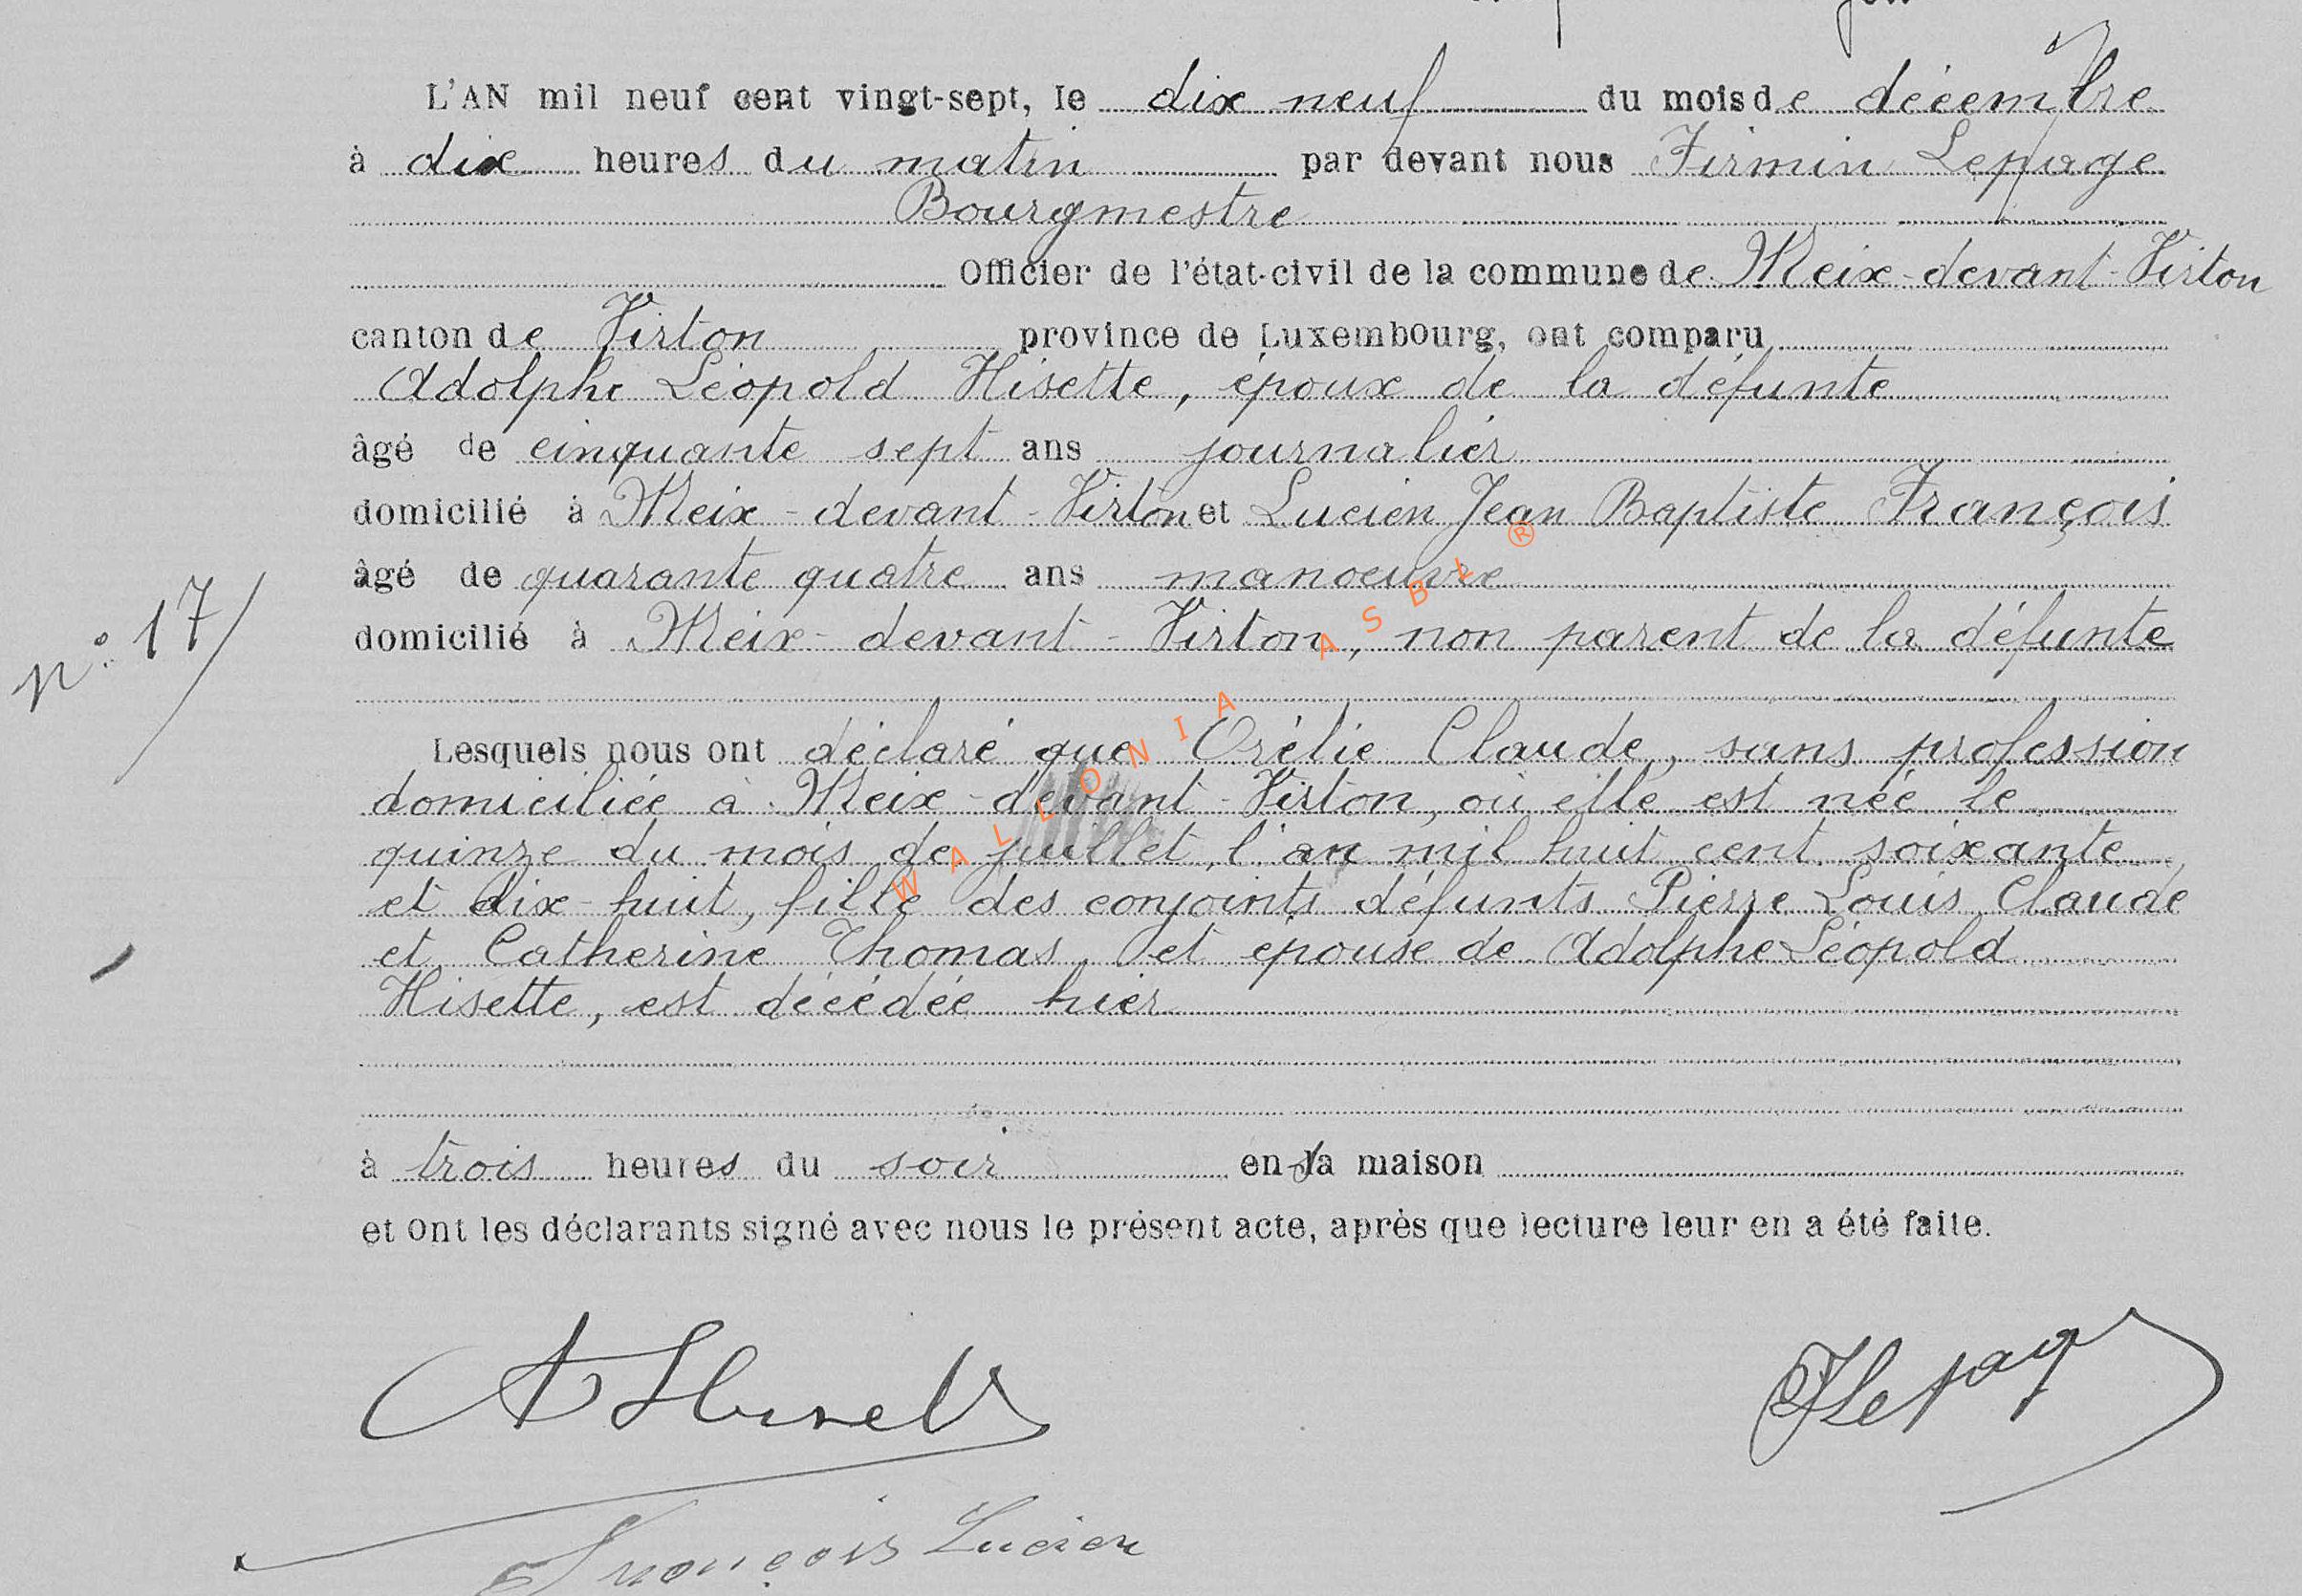 L'AN mil neuf cent vingt-sept, le dix neuf du mois de décembre
à dix heures du matin par devant nous Firmin Lepage
Bourgmestre
Officier de l'état-civil de la commune de Meix-devant-Virton
canton de Virton province de Luxembourg, ont comparu
Adolphe Léopold Hisette, époux de la défunte
âgé de cinquante sept ans journalier
domicilié à Meix-devant-Virton et Lucien Jean Baptiste François
âgé de quarante quatre ans manoeuvre
nº 17/
domicilié à Meix-devant-Virton, non parent de la défunte
Lesquels nous ont déclaré que Orélie Claude, sans profession
domiciliée à Meix-devant-Virton, où elle est née le
quinze du mois de juillet, l'an mil huit cent soixante
et dix-huit, fille des conjoints défunts Pierre Louis Claude
et Catherine Thomas, et épouse de Adolphe Léopold
Hisette, est décédée hier
à trois heures du soir en sa maison
et ont les déclarants signé avec nous le présent acte, après que lecture leur en a été faite.
A Hisette
FLepage
François Lucien
WALLONIA ASBL ®